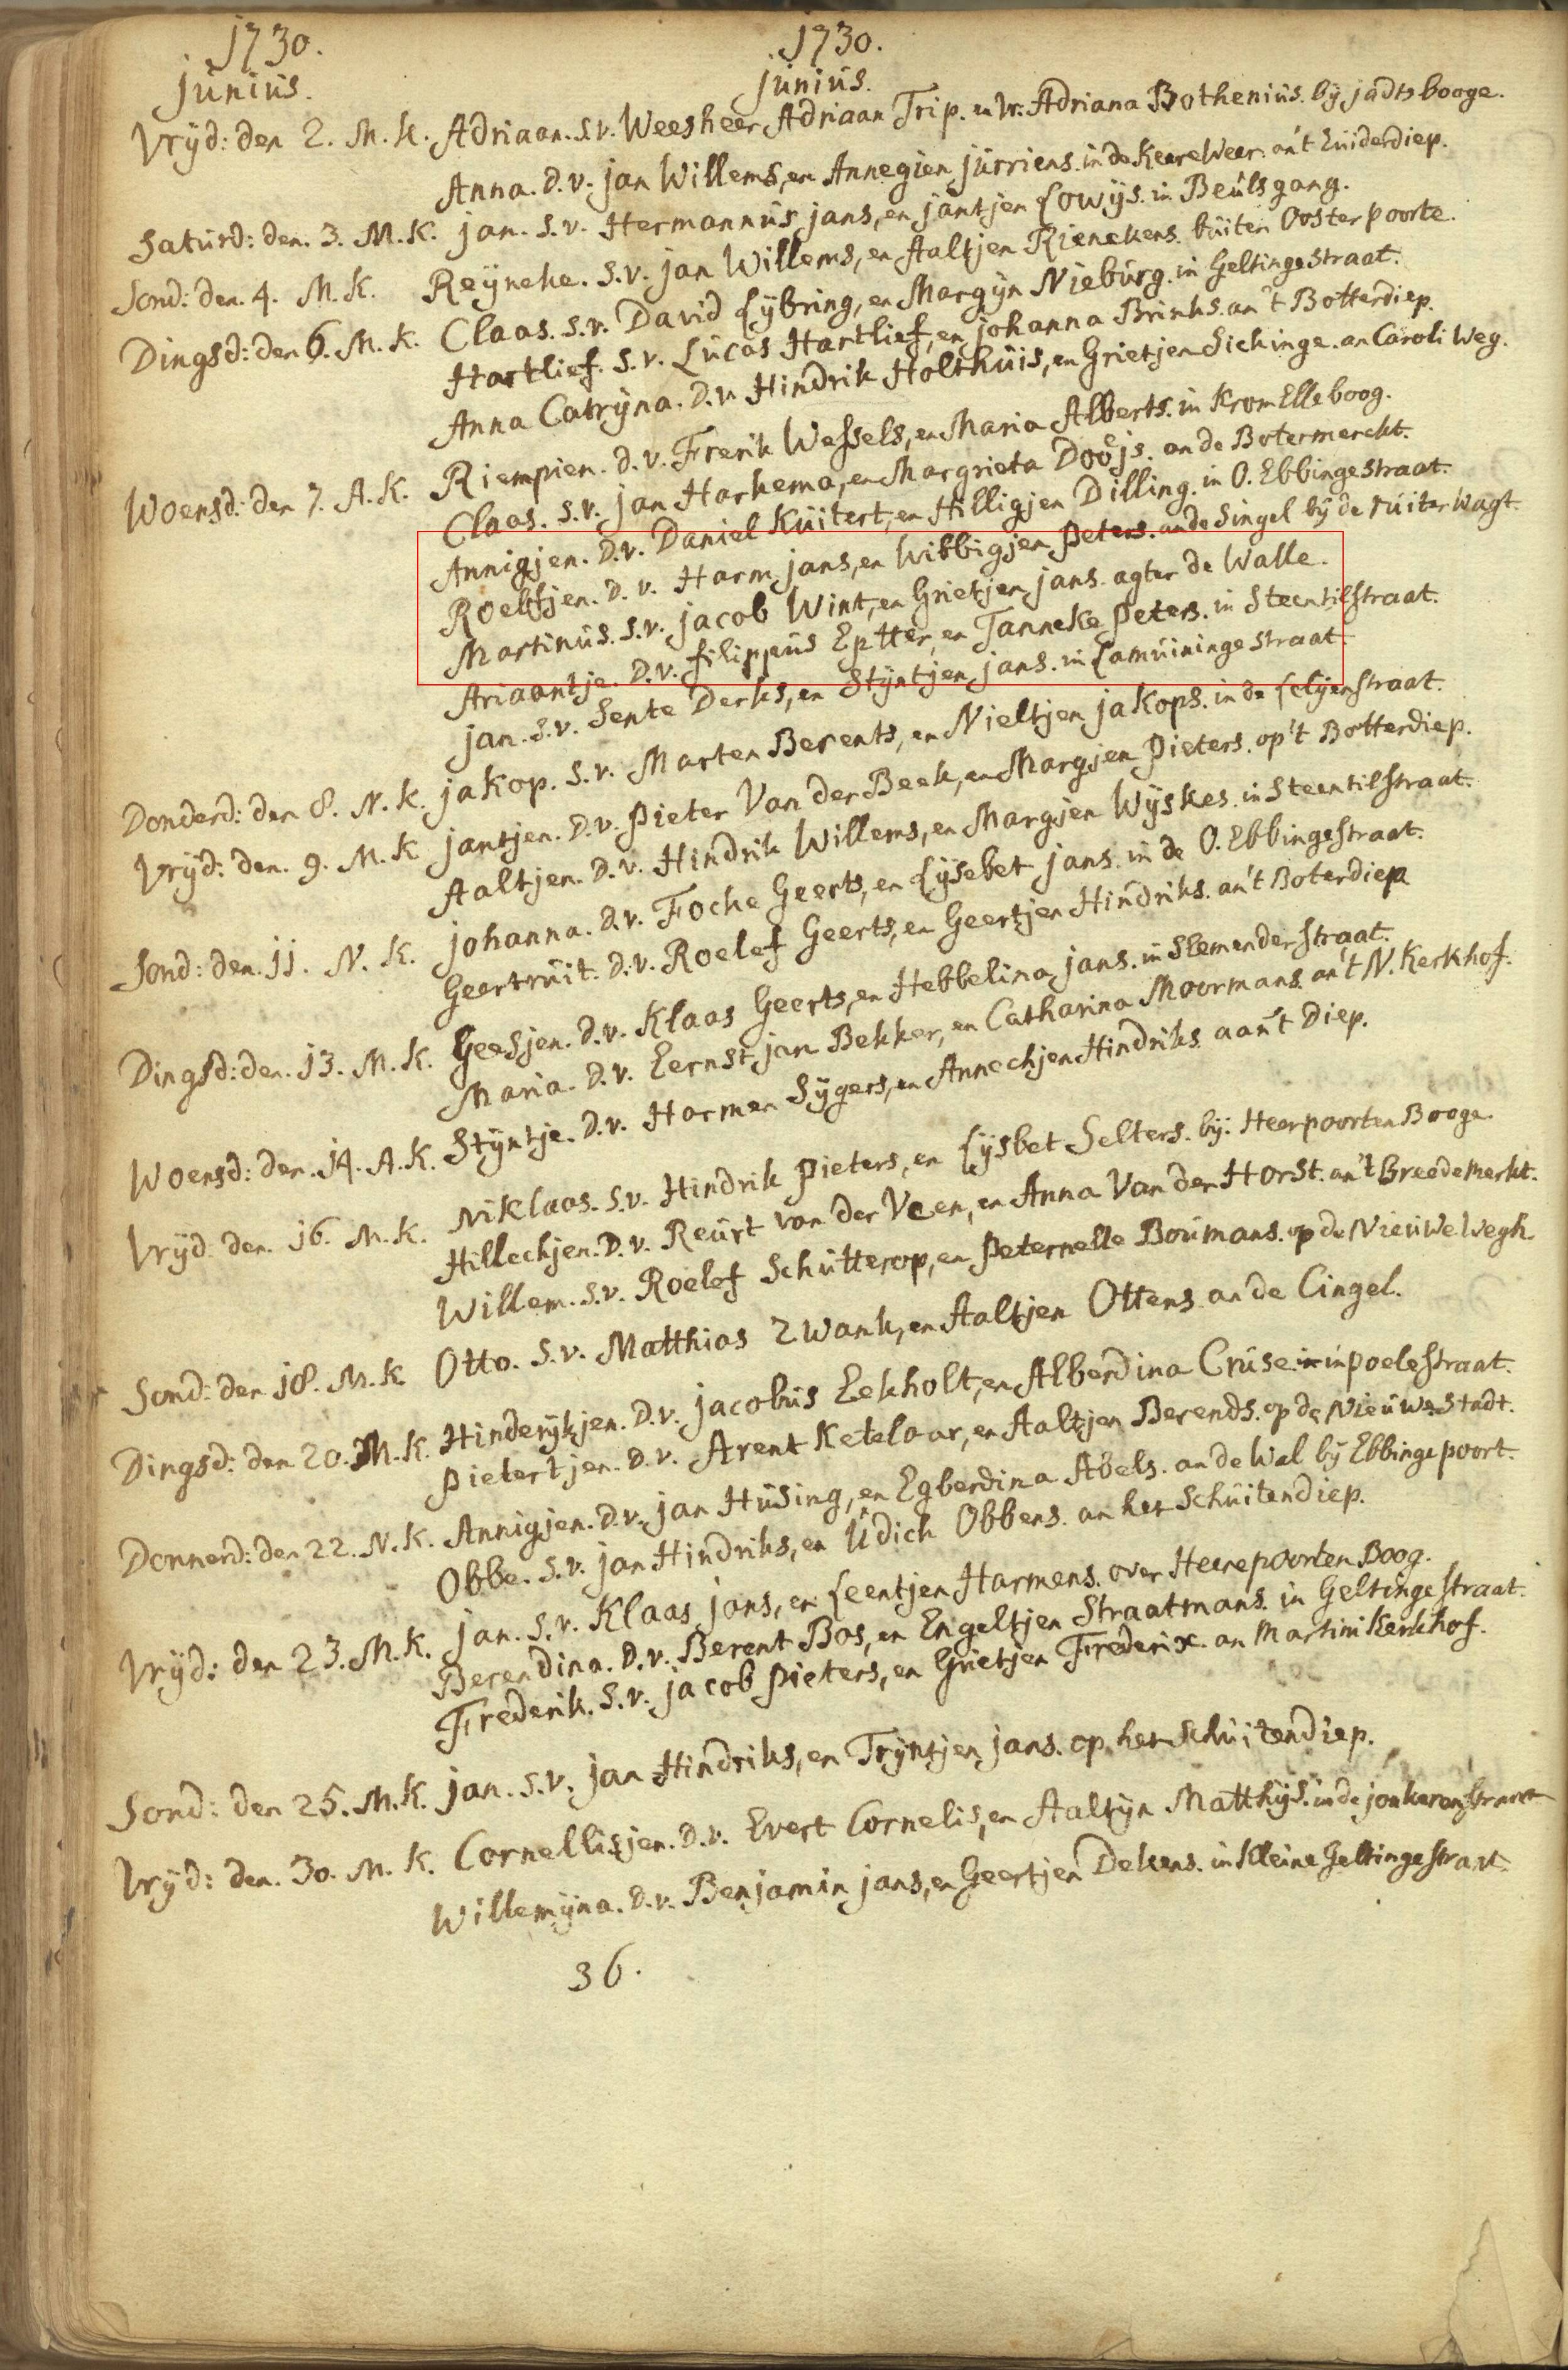 1730. 1730.
junius. junius.
Vrÿd: den 2. M. K. Adriaan. s.v. Weesheer Adriaan Trip. en Vr: Adriana Bothenius. bÿ jadts booge.
Anna. D. v. jan Willems, en Annegien jurriens. in de Keere Weer. an't Zuiderdiep.
Saturd: den. 3. M.K. jan. s. v. Hermannus jans, en jantjen Lowÿs. in Beuls gang.
Sond: den. 4. M. K. Reÿneke. s.v. jan Willems, en Aaltjen Rienekens. buiten Ooster poorte.
Dingsd: den 6. M. K. Claas. s.v. David Lÿbring, en Margÿn Nieburg. in Geltinge straat.
Hartlief. s. v. Lucas Hartlief, en johanna Brinks. an 't Botterdiep.
Anna Catrÿna. D. v. Hindrik Holthuis, en Grietjen Sickinge. an Caroli Weg.
Woensd: den 7. A. K. Riempien. d. v. Frerik Wessels, en Maria Alberts. in Krom Elleboog.
Claas. s.v. jan Harkema, en Margrieta Dooejs. an de Botermerckt.
Annigjen. D.v. Daniel Kuitert, en Hilligjen Dilling. in O. Ebbinge straat.
Roelfjen. D. v. Harm jans, en Wibbigjen Peters. an de Singel bÿ de ruiter Wagt.
Martinus. s.v. jacob Wint, en Grietjen jans. agter de Walle.
Ariaantje. D.v. filippus Eptter, en Tanneke Peters. in Steentilstraat.
jan. s.v. Sente Derks, en Stÿntjen jans. in Lamuininge straat.
Donderd: den 8. N. K. jakop. s.v. Marten Berents, en Nieltjen jakops. in de Lelÿenstraat.
Vrÿd: den. 9. M. K jantjen. D.v. Pieter Van der Beek, en Margjen Pieters. op't Botterdiep.
Aaltjen. D. v. Hindrik Willems, en Margjen Wÿskes. in Steentilstraat.
Sond: den. 11. N. K. johanna. D.v. Focke Geerts, en Lÿsebet jans. in de O. Ebbingestraat.
Geertruit. D.v. Roelef Geerts, en Geertjen Hindriks. an't Boterdiep
Dingsd: den. 13. M. K. Geesjen. D.v. Klaas Geerts, en Hebbelina jans. in Slemender straat.
Maria. D. v. Eernst jan Bekker, en Catharina Moormans. an't N. Kerkhof.
Woensd: den. 14. A.K. Stÿntje. D.v. Harmen Sÿgers, en Annechjen Hindriks. aan't Diep.
Vrÿd. den. 16. M. K. Niklaas. s.v. Hindrik Pieters, en Lÿsbet Selters. bÿ: Heerpoorten Booge
Hillechjen. D. v. Reurt van der Veen, en Anna Van der Horst. an't Breedemerkt.
Willem. s.v. Roelef Schutterop, en Peternelle Boumans. op de Nieuwe Wegh.
Sond: den 18. M. K. Otto. s.v. Matthias Zwank, en Aaltjen Ottens. an de Cingel.
Dingsd: den 20. M. K. Hinderÿkjen. D. v. jacobus Eekholt, en Alberdina Cruse. in in poelestraat.
Pietertjen. D.v. Arent Ketelaar, en Aaltjen Berends. op de Nieuwe Stadt.
Donnerd: den 22. N. K. Annigjen. D.v. jan Husing, en Egberdina Abels. an de Wal bÿ Ebbinge poort.
Obbe. s.v. jan Hindriks, en Udich Obbens. an het Schuitendiep.
Vrÿd: den 23. M. K. jan. s.v. Klaas jans, en Leentjen Harmens. over Heerepoorten Boog.
Berendina. D.v. Berent Bos, en Engeltjen Straatmans. in Geltinge straat.
Frederik. s.v. jacob Pieters, en Grietjen Frederix. an Martini Kerkhof.
Sond: den 25. M. K. jan. s.v. jan Hindriks, en Trÿntjen jans. op het Schuitendiep.
Vrÿd: den. 30. M. K. Cornellisjen. D.v. Evert Cornelis, en Aaltÿn Matthÿs. in de jonkerenstraat
Willemÿna. D.v. Benjamin jans, en Geertjen Dekens. in Kleine Geltinge straat.
36.